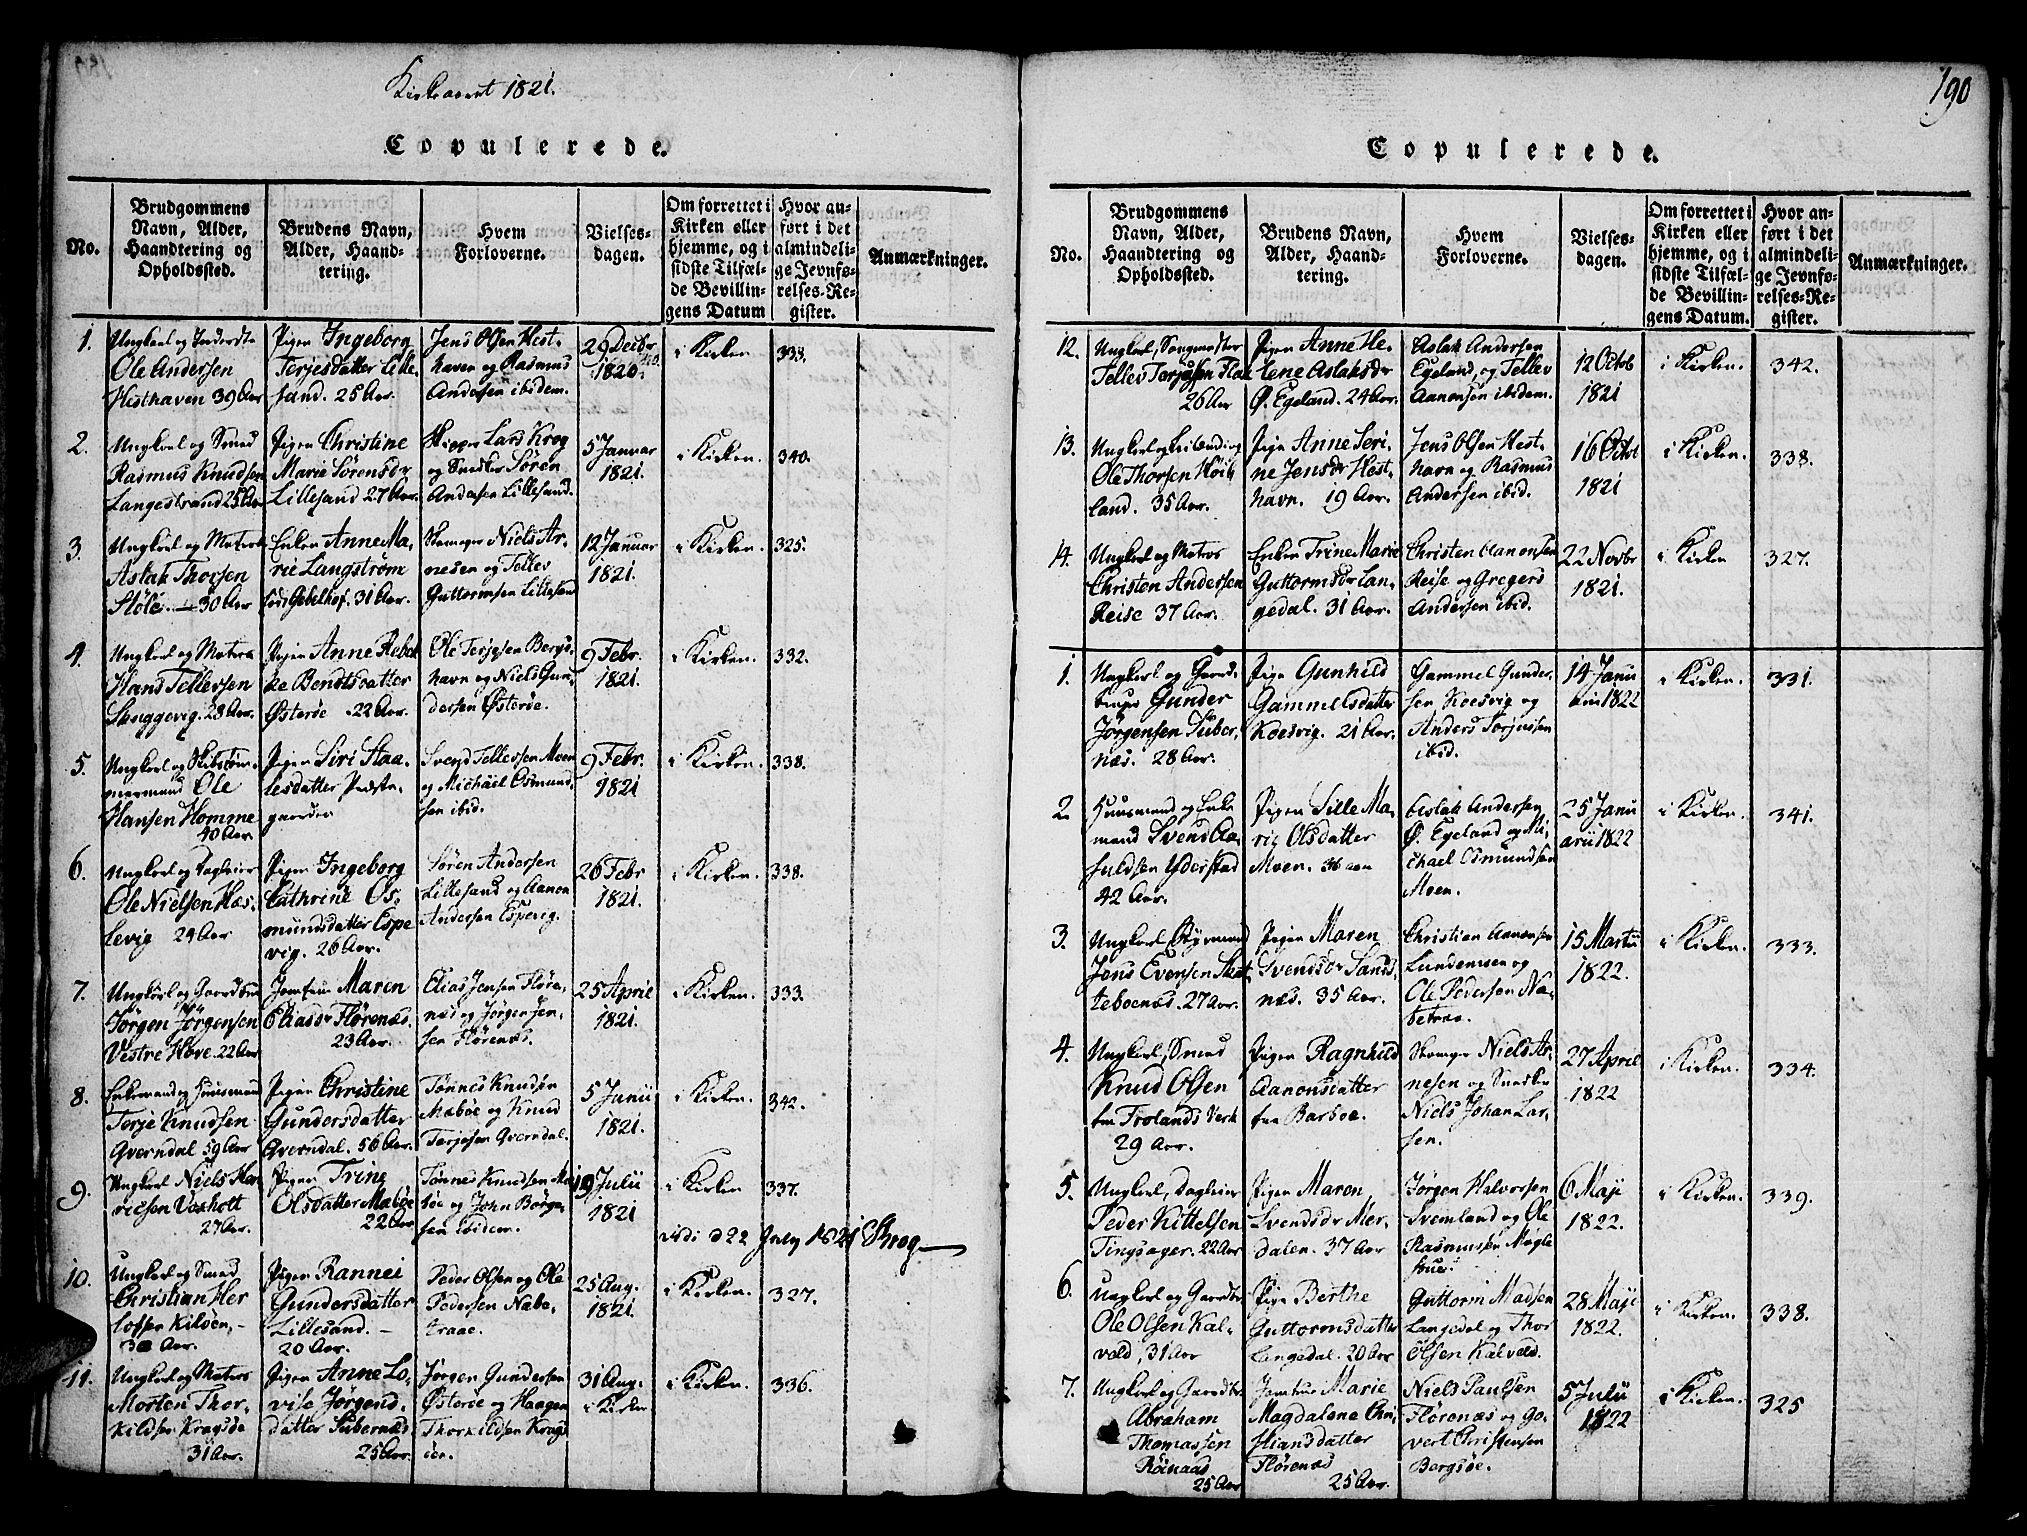 Kirkeaaret 1821.
190
Copulerede.
No.
Brudgommens
Navn, Alder,
Haandtering og
Opholdssted.
Brudens Navn,
Alder, Haand-
tering.
Hvem
Forloverne.
Vielses-
dagen.
Om forrettet i
Kirken eller
hjemme, og i
sidste Tilfæl-
de Bevillin-
gens Datum
Hvor an-
ført i det
almindeli-
ge Jevnfø-
relses-Re-
gister.
Anmærkninger.
1.
Ungkarl og
Ole Andersen
Hesthaven 39 Aar
Pigen Ingeborg
Terjesdatter Lille-
sand. 25 Aar.
Jens Olsen Hest-
haven og Rasmus
Andersen ibidem.
29 Decbr
1820.
i Kirken.
333.
2.
Ungkarl og Smed
Rasmus Knudsen
Langestrand 25 Aar
Pigen Christine
Marie Sørensdr
Lillesand 27 Aar.
Skipper Lars Krog
og Snedker Søren
Andersen Lillesand.
5 Januar
1821.
i Kirken.
340.
3.
Ungkarl og Matros
Aslak Thorsen
Støle. — 30 Aar
Enken Anne Ma-
rie Langstrøm
fød Gebelhof. 31 Aar.
Niels Ar-
nesen og Tellev
Guttormsen Lillesand
12 Januar
1821.
i Kirken.
325.
4.
Ungkarl og Matros
Hans Tellefsen
Skuggevig. 28 Aar.
Pigen Anne Rebek-
ke Bendtsdatter
Østerøe. 22 Aar.
Ole Terjesen Bergs-
havn og Niels Gun-
dersen Østerøe.
9 Febr.
1821.
i Kirken.
332.
5.
Ungkarl og Skibstøm-
mermand Ole
Hansen Homme
40 Aar
Pigen Siri Staa-
lesdatter Præste-
gaarden
Svend Tellefsen Moen
og Michael Osmund-
sen ibid.
9 Febr.
1821
i Kirken.
338.
6.
Ungkarl og Dagleier
Ole Nielsen Hæs-
levje 24 Aar
Pigen Ingeborg
Cathrine Os-
mundsdatter Espe
vig. 26 Aar.
Søren Andersen
Lillesand og Aanon
Andersen Espevig.
26 Febr
1821.
i Kirken.
338.
7.
Ungkarl og Gaardbr
Jørgen Jørgensen
Vestre Hove. 22 Aar
Jomfrue Maren
Eliasdr Florenæs.
23 Aar.
Elias Jensen Flore-
næs og Jørgen Jen-
sen Florenæs.
25 April
1821.
i Kirken.
333.
8.
Enkemand og Huusmand
Terje Knudsen
Qverndal 59 Aar
Pigen Christine
Gundersdatter
Qverndal. 56 Aar.
Tønnes Knudsen
Mæbøe og Knud
Terjesen Qverndal.
5 Junii
1821.
i Kirken.
342.
9.
Ungkarl Niels Hen
ricsen Vaxholt
27 Aar.
Pigen Trine
Olsdatter Mæbøe
22 Aar
Tønnes Knudsen Mæ
bøe og John Børge-
sen ibidem.
19 Julii
1821
i Kirken
337.
vidi d 22 July 1821 Krog
10.
Ungkarl og Smed
Christian Her
lofsen Kiløen, —
30 Aar.
Pigen Rannei
Gundersdatter
Lillesand. —
20 Aar.
Peder Olsen og Ole
Pedersen Nabe-
traae.
25 Aug.
1821.
i Kirken.
327.
11.
Ungkarl og Matros
Morten Thor-
kildsen Kragsøe
31 Aar.
Pigen Anne Lo-
vise Jørgens-
datter Subernæs
25 Aar.
Jørgen Gundersen
Østerøe og Haagen
Thorkildsen Krags
øen.
31 Aug.
i Kirken
i Kirken.
336.
Copulerede.
No.
Brudgommens
Navn, Alder,
Haandtering og
Opholdssted.
Brudens Navn,
Alder, Haand-
tering.
Hvem
Forloverne.
Vielses-
dagen.
Om forrettet i
Kirken eller
hjemme, og i
sidste Tilfæl-
de Bevillin-
gens Datum.
Hvor an-
ført i det
almindeli-
ge Jevnfø-
relses-Re-
gister.
Anmærkninger.
12.
Ungkarl, Saugmester
Tellev Terjesen Flak
26 Aar
Pigen Anne He-
lene Aslaksdr
Ø. Egeland. 24 Aar.
Aslak Andersen
Egeland, og Tellev
Aanonsen ibidem.
12 Octob
1821
i Kirken.
342.
13.
Ungkarl og Leilending
Ole Thorsen Høib
land. 35 Aar.
Pigen Anne Seri-
ne Jensdr Hest-
havn. 19 Aar.
Jens Olsen Hest-
havn og Rasmus
Andersen ibid.
16 Octob
1821
i Kirken.
338.
14.
Ungkarl og Matros
Christen Andersen
Reise 37 Aar.
Enken Trine Marie
Guttormsdr Lan-
gedal. 31 Aar.
Christen Aanonsen
Reise og Gregers
Andersen ibid.
22 Novbr
1821.
i Kirken
327.
1.
Ungkarl og Gaard-
bruger Gunder
Jørgensen Suber-
næs. 28 Aar.
Pigen Gunhild
Gammelsdatter
Koesvig. 21 Aar.
Gammel Gunder-
sen Koesvig og
Anders Torjussen
ibid.
14 Janu
arii 1822
i Kirken.
331.
2.
Huusmand og Enke
mand Svend Aa-
suldsen Yderstad
42 Aar.
Pigen Sille Ma-
rie Olsdatter
Moen. 36 aar
Aslak Andersen
Ø. Egeland og Mi-
chael Osmundsen
Moen.
25 Janu
arii 1822
i Kirken.
341.
3.
Ungkarl, Styrmand
Jens Evensen Skot
teboenæs. 27 Aar.
Pigen Maren
Svendsdr Sands-
næs. 35 Aar.
Christian Aanonsen
Lundemoen og
Ole Pedersen Na-
betraae.
15 Martii
1822.
i Kirken.
333.
4.
Ungkarl, Smed
Knud Olsen
fra Frolands Verk
29 Aar.
Pigen Ragnhild
Aanonsdatter
fra Barboe.
Niels Ar-
nesen og Snedker
Niels Johan Lar-
sen.
27 April
1822
i Kirken.
334.
5.
Ungkarl, Dagleier
Peder Kittelsen
Tingsager. 22 Aar
Pigen Maren
Svendsdr Mer-
dalen. 37 Aar
Jørgen Halvorsen
Svemland og Ole
Rasmussen Mogle
stue.
6 Maji
1822.
i Kirken.
339.
6.
Ungkarl og Gaardbr.
Ole Olsen Kal-
vold, 31 Aar
Pige Berthe
Guttormsdatter
Langedal. 20 Aar
Guttorm Madsen
Langedal og Thor
Olsen Kalvold.
28 Maji
1822.
i Kirken.
338.
7.
Ungkarl og Gaardbr.
Abraham
Thomassen
Rønaas
25 Aar
Jomfrue Marie
Magdalene Chri-
stiansdatter
Florenæs
25 Aar.
Niels Paulsen
Florenæs og Go-
vert Christensen
Bergsøe.
5 Julii
1822
i Kirken.
325